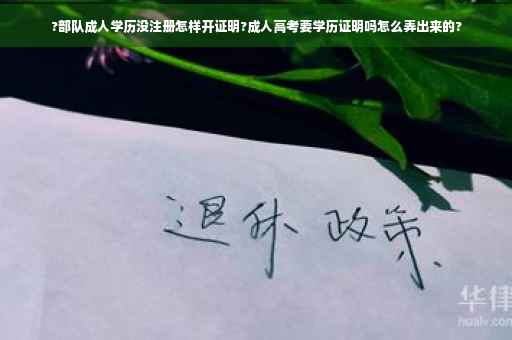 ?部队成人学历没注册怎样开证明?成人高考要学历证明吗怎么弄出来的?
退休 政策
华律
hualv.com